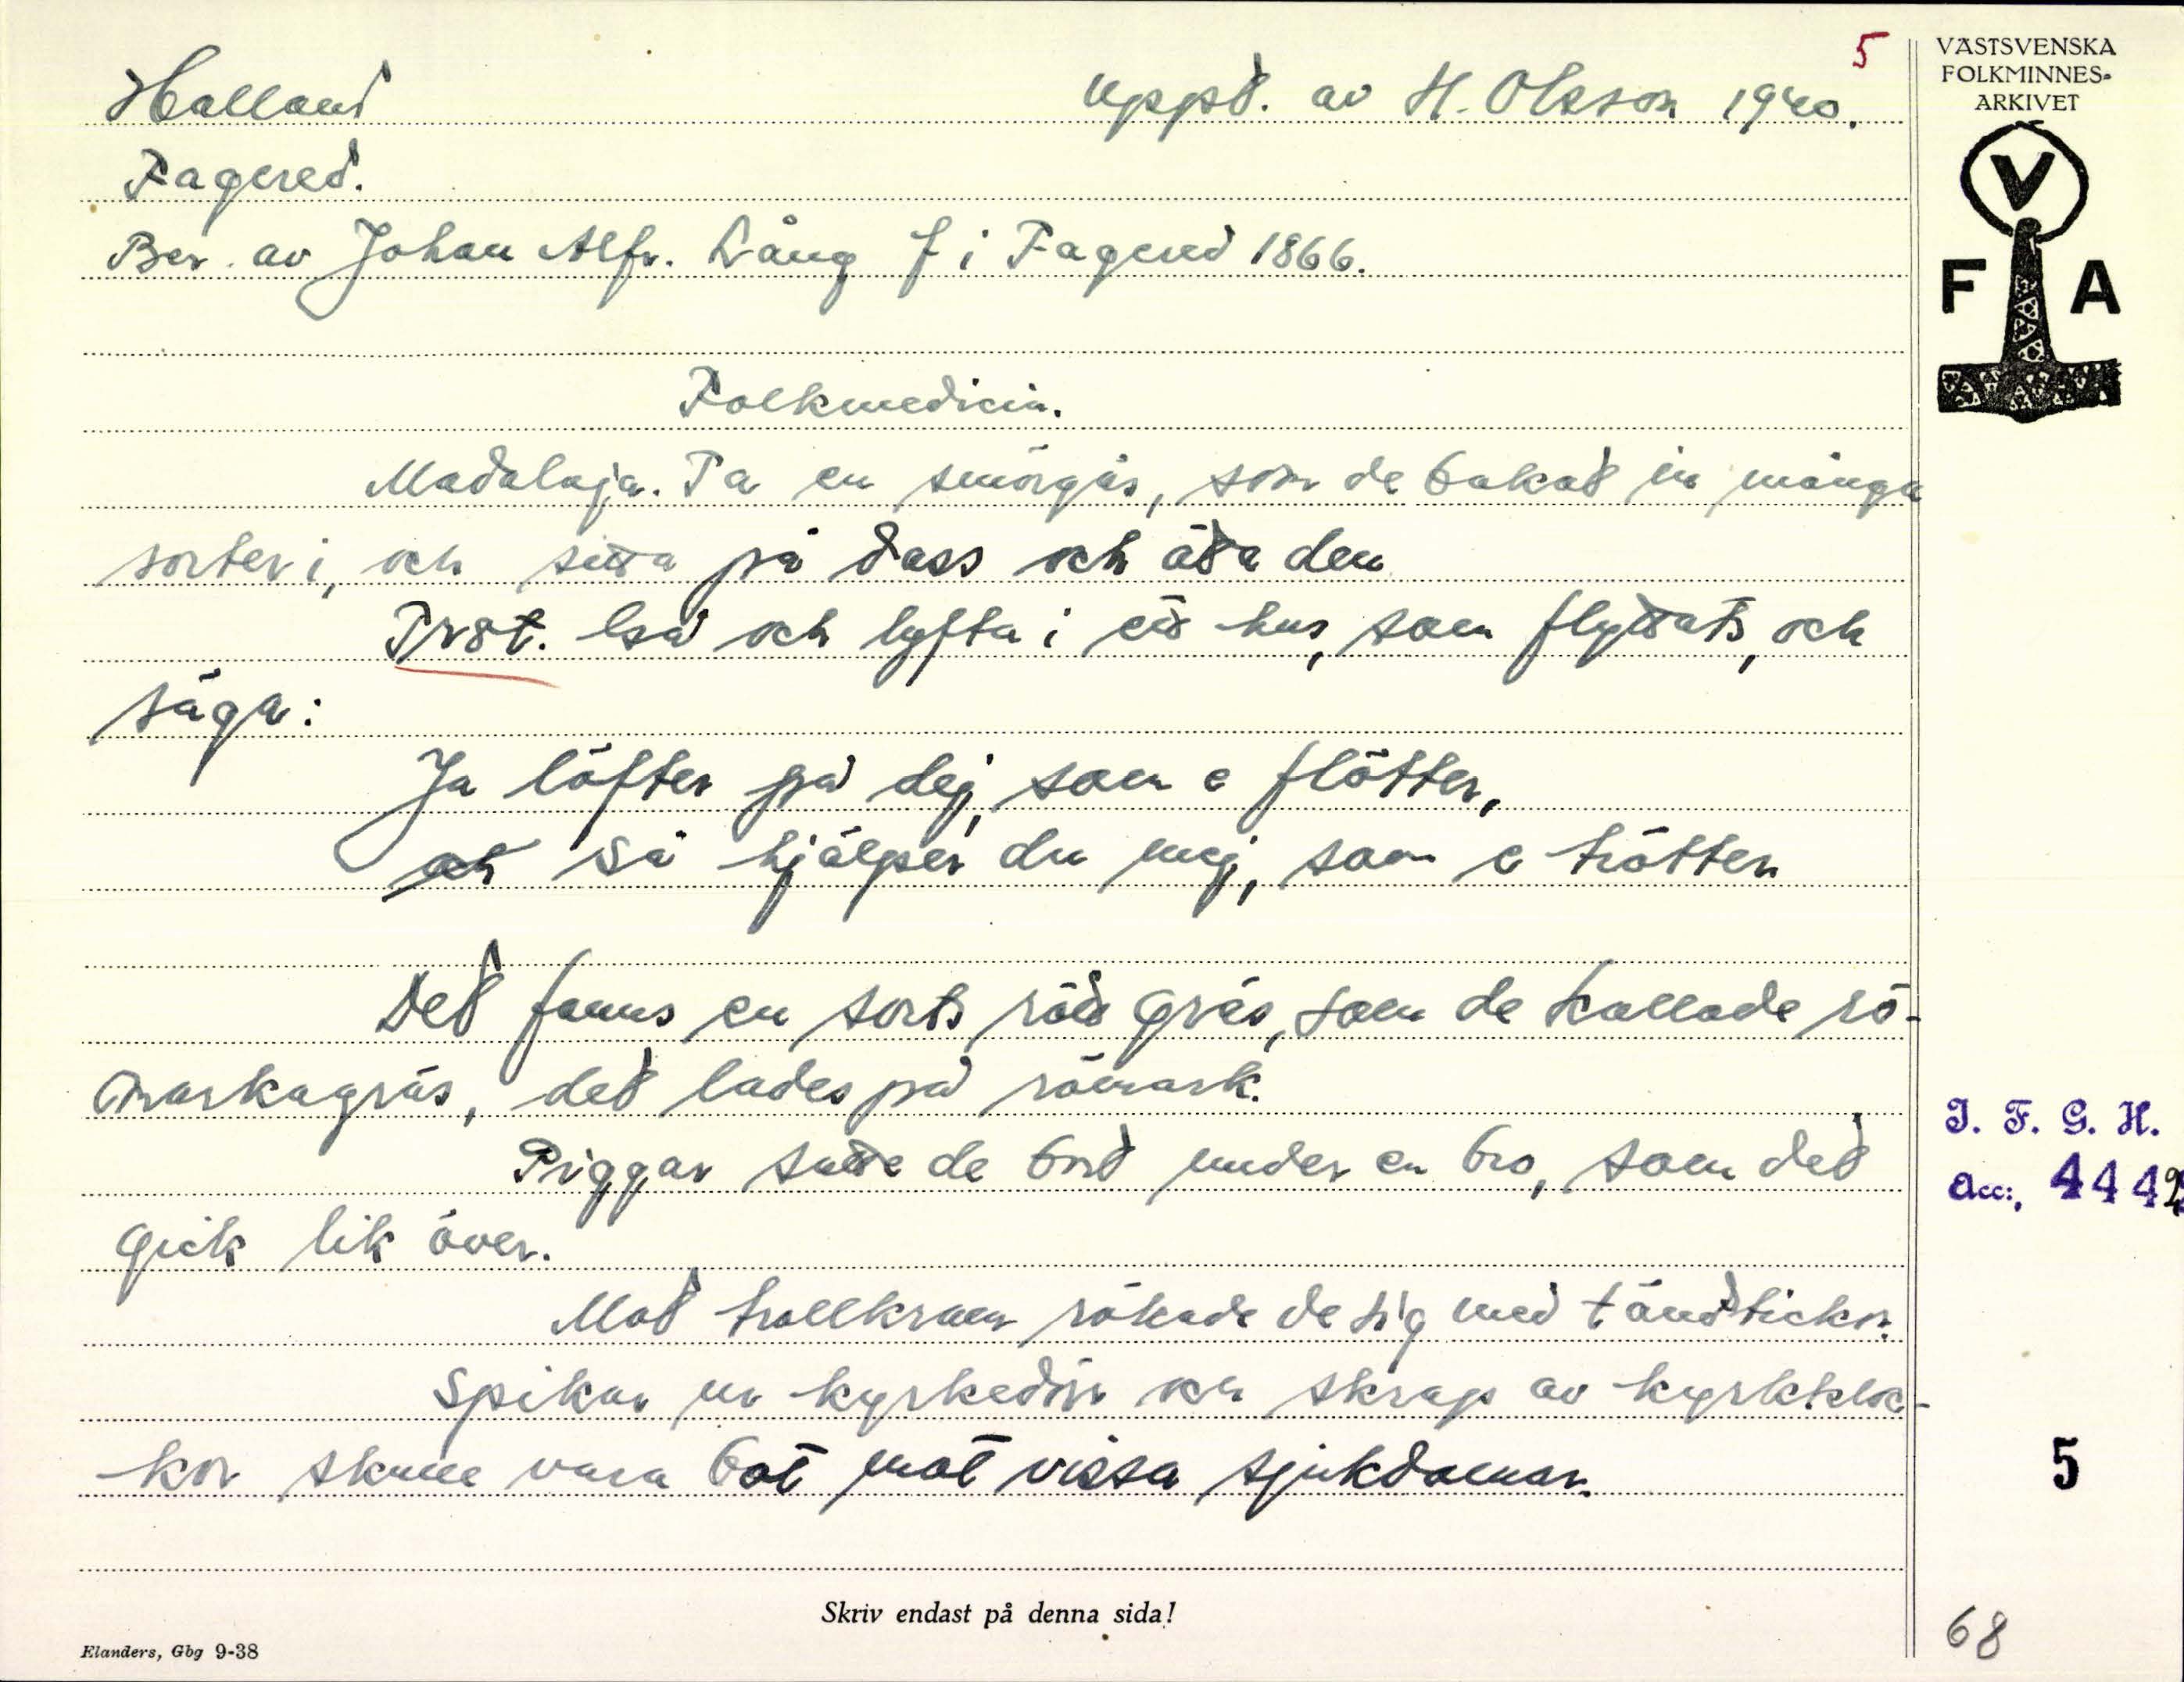 5
Halland
Uppt. av H. Olsson 1940.
Fagered.
Ber. av Johan Alfr. Lång f i Fagered 1866.
Folkmedicin.
Madaleja. Ta en smörgås, som de bakat in många
sorter i, och sitta på dass och äta den
Tröt. Gå och lyfta i ett hus, som flyttats, och
säga:
Ja löfter på dej, som e flötter,
så hjälper du mej, som e trötter
Det fanns en sorts röd gräs, som de kallade rö-
markagräs, det lades på römark.
Piggar satte de bort under en bro, som det
gick lik över.
Mot trollkraem rökade de sig med tändstickor.
Spikar ur kyrkedörr och skrap av kyrkkloc-
kor skulle vara bot mot vissa sjukdomar.
VÄSTSVENSKA
FOLKMINNES-
ARKIVET
V
F A
I. F. G. H.
Acc:, 4442
5
68
Skriv endast på denna sida!
Elanders, Gbg 9-38